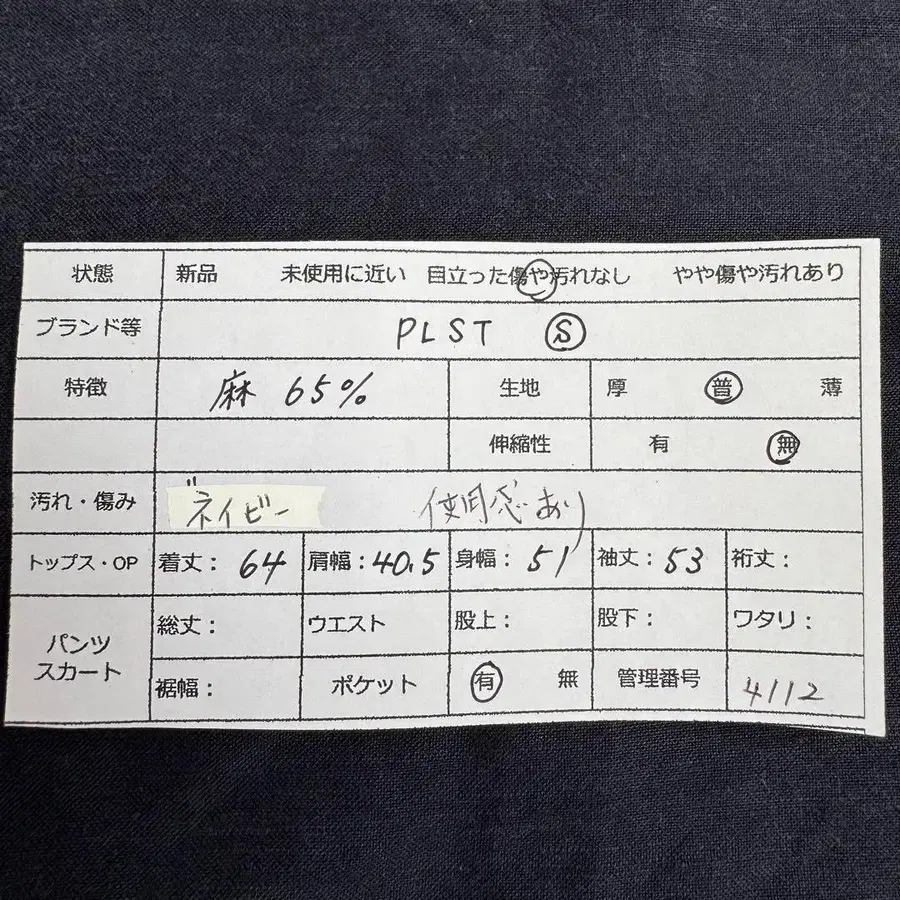 状態 新品 未使用に近い 目立った傷や汚れなし やや傷や汚れあり
ブランド等 PLST Ⓢ
特徴 麻 65% 生地 厚 普 薄
伸縮性 有 無
汚れ・傷み ネイビー 使用感あり
トップス・OP 着丈: 64 肩幅:40.5 身幅: 51 袖丈:53 裄丈:
パンツ スカート 総丈: ウエスト 股上: 股下: ワタリ:
裾幅: ポケット 有 無 管理番号 4112